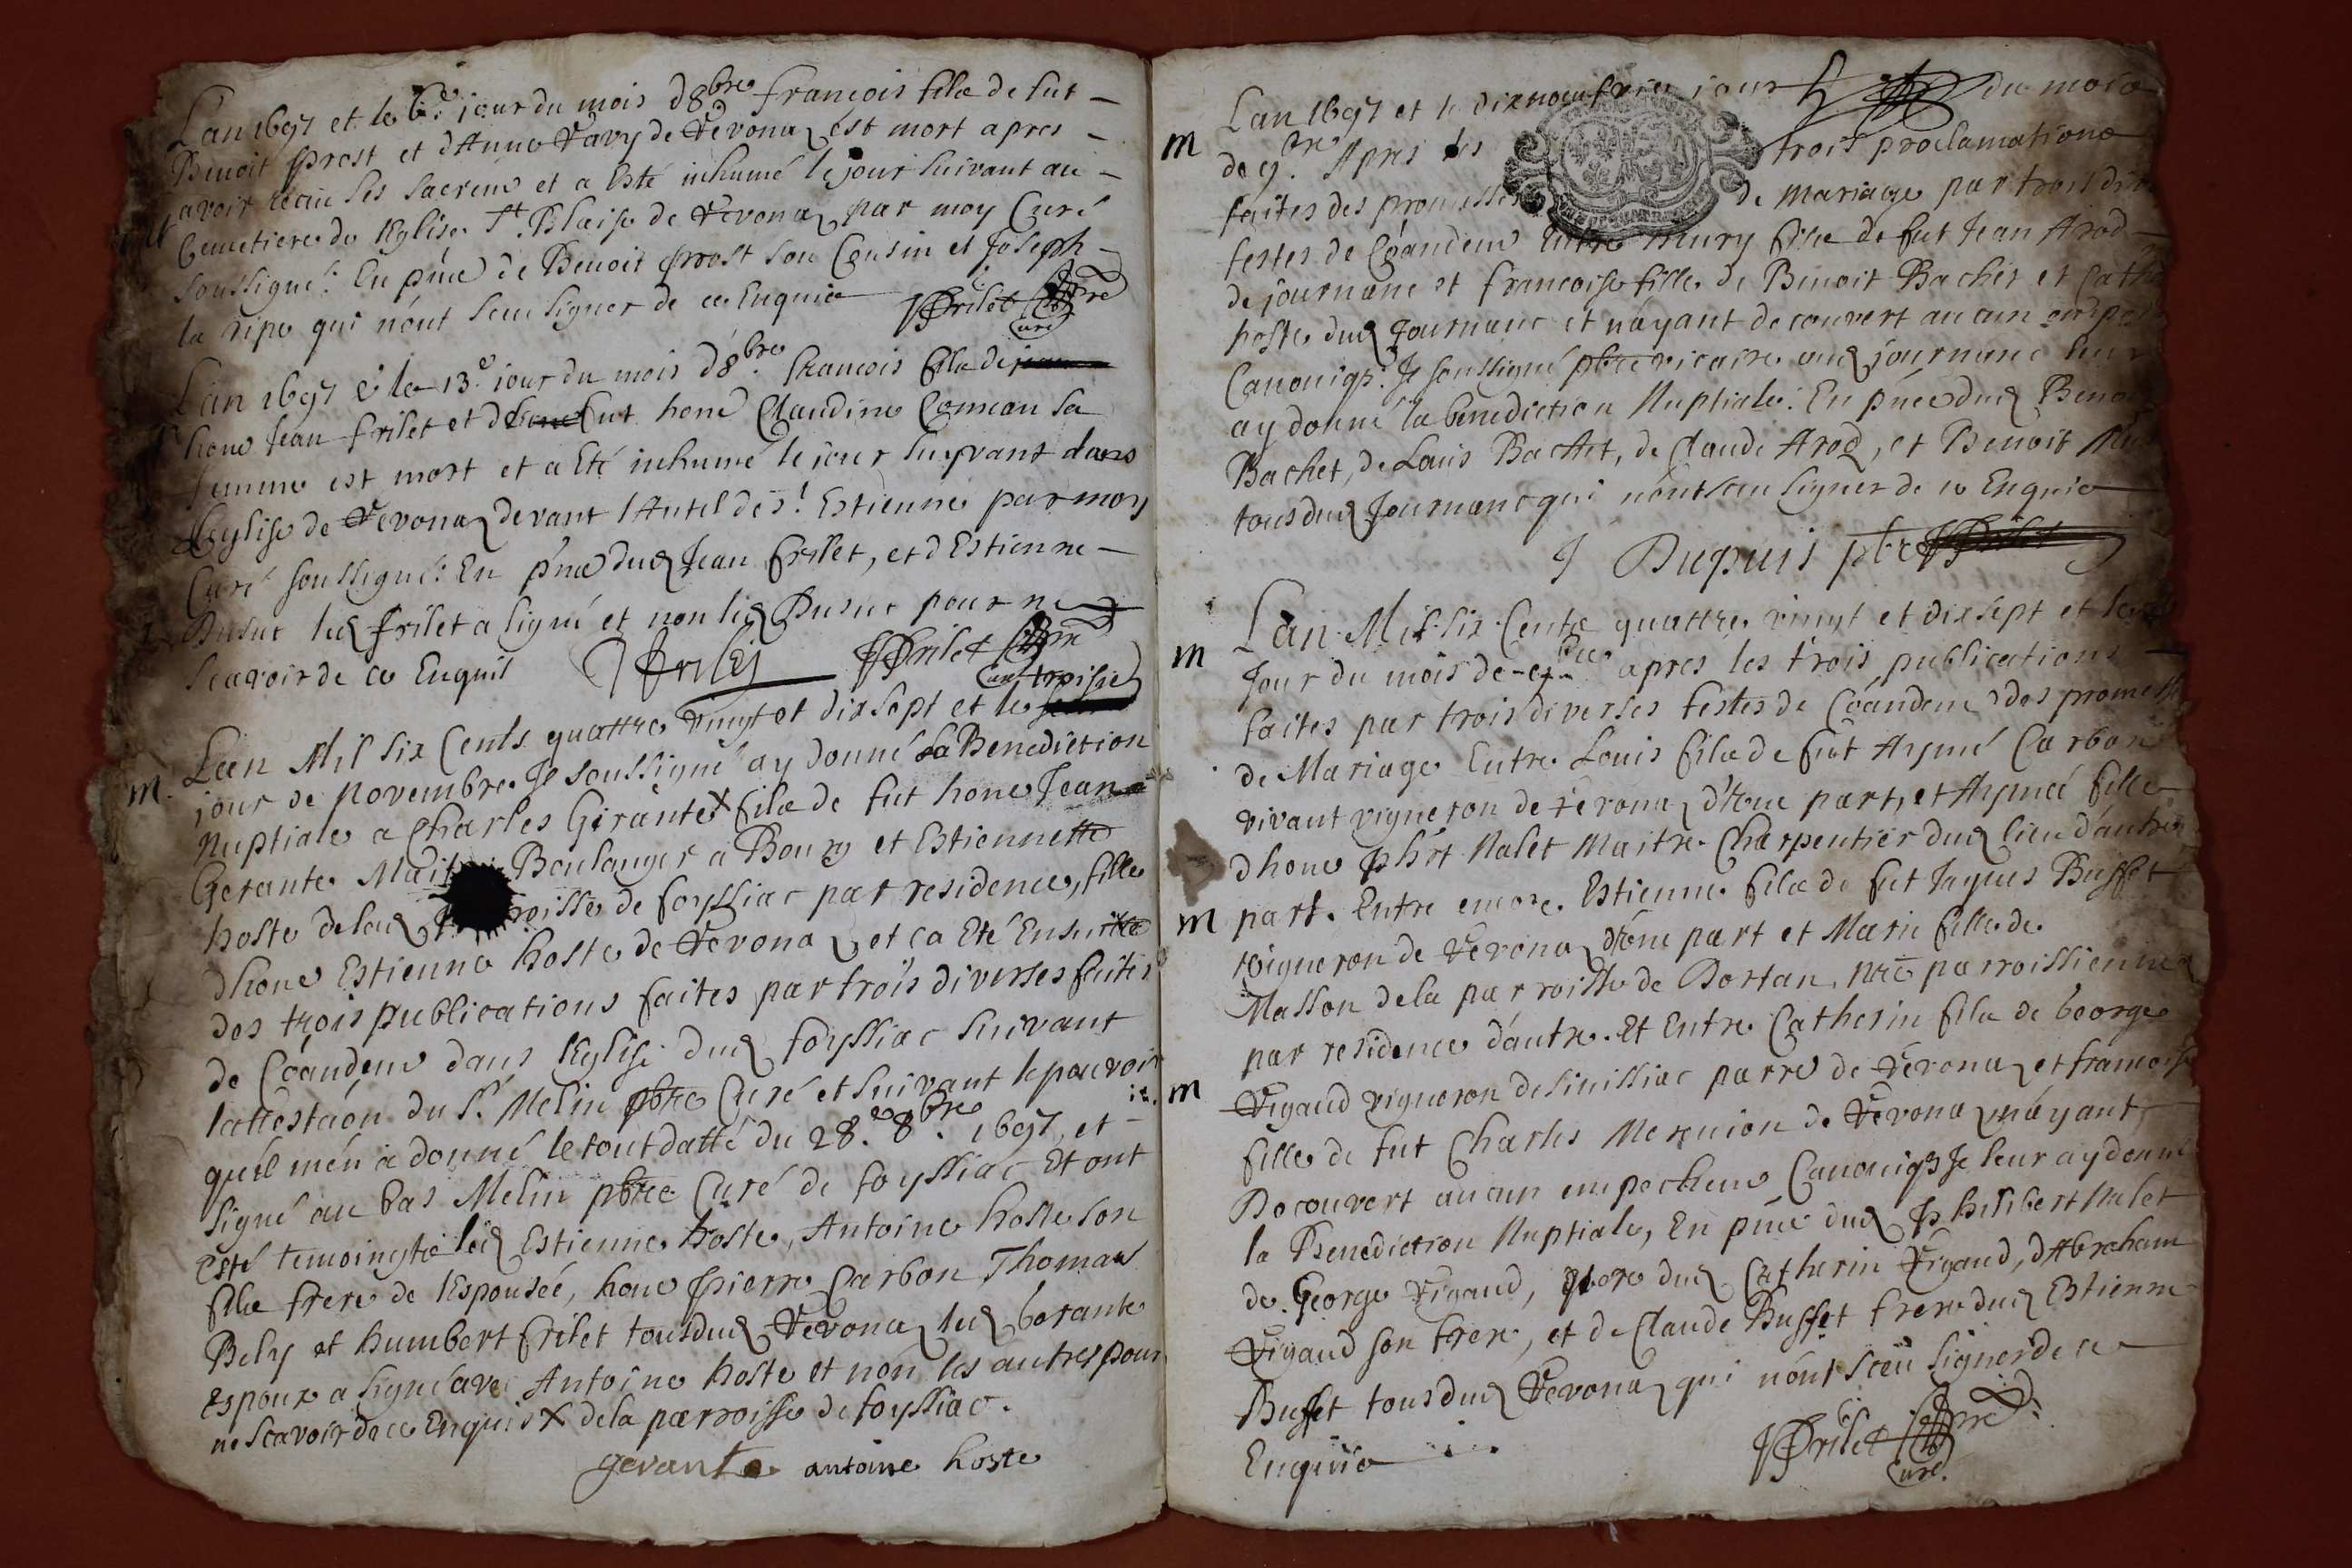 Lan 1697 et le 6.e jour du mois d8bre francois filz de fut
Benoit Prost et dAnne Vavy de Vevona est mort apres
avoir receu ses sacrem et a Esté inhumé le jour suivant au
Cemetiere de lEglise St. Blaise de Vevona par moy Curé
soussigné: En pnce de Benoit Prost son Cousin et Joseph
la ripe qui nont sceu signer de ce Enquis Frilet pre
Curé
Lan 1697 & le 13.e jour du mois d8.bre francois filz de
hone Jean frilet et de fut hone Claudine Comean sa
femme est mort et a Eté inhumé le jour suyvant dans
lEglise de Vevona devant lAutel de st Estienne par moy
Curé soussigné: En pnce dud Jean frilet, et dEstienne
Busut led frilet a signé et non led Busut pour ne
scavoir de ce Enquis Frilet Frilet pre
Curé troisie
m. Lan Mil six Cents quattre vingt et dix sept et le
jour de Novembre Je soussigné ay donné La Benediction
Nuptiale a Charles Girante X filz de fut hone Jean
Gerante Boulanger a Bourg et Estiennette
hoste de lad de foyssiac par residence, fille
dhone Estienne hoste de Vevona et ca Eté Ensuitte
des trois publications faites par trois diverses faites
de Coandem dans lEglise dud foyssiac suivant
lattestaon du Sr. Melin pbre Curé et suivant le pouvoir
quil men a donné le tout datté du 28.e 8bre. 1697, et
signé au bas Melin pbre Curé de foyssiac Et ont
esté temoingts led Estienne hoste, Antoine hoste son
filz frere de lEspouseé, hone Pierre Carbon Thomas
Bely et humbert frilet tous dud Vevona led Gerante
Espoux a signé avec Antoine hoste et non les autres pour
ne scavoir de ce Enquis X de la parroisse de foyssiac.
gerante antoine hoste
Lan 1697 et le dixneufvie jour du mois
m de 9.bre Apres les trois proclamations
faites des promesses de mariage par trois
festes de Coandem Entre filz de fut Jean Arod
de journanc et francoise fille de Benoit Bachet et
hoste dud Journanc et nayant decouvert aucun
Canoniqs. Je soussigné pbre vicaire aud journanc leur
ay donné la benediction Nuptiale: En pnce dud
Bachet, de Louis Bachet, de Claude Arod, et Benoit
tous dud Journanc qui nont sceu signer de ce Enquis
J Dupuis pbre
Lan Mil six Cents quattre vingt et dix sept et le
m Jour du mois de apres les trois publications
faites par trois diverses festes de Coandem des promesse
de Mariage Entre Louis filz de fut Aymé Carbon
vivant vigneron de Vevona dUne part, et Aymeé fille
dhone Phirt Nalet Maitre Charpentier dud lieu dautre
m part. Entre encore Estienne filz de fut Jaques Buffet
vigneron de Vevona dUne part et Marie fille de
Masson de la parroisse de Dortan, nre parroissienne
par residence dautre. Et Entre Catherin filz de George
m Vigaud vigneron de sinissiac parre de Vevona et francoise
fille de fut Charles de Vevona nayant
Decouvert aucun empechem Canoniqs Je leur ay donné
la Benediction Nuptiale, En pnce dud Philibert Nalet
de George Vigaud, pere dud Catherin Vigaud, dAbraham
Vigaud son frere, et de Claude Buffet frere dud Estienne
Buffet tous dud Vevona qui nont sceu signer de ce
Enquis Frilet pre
Curé.